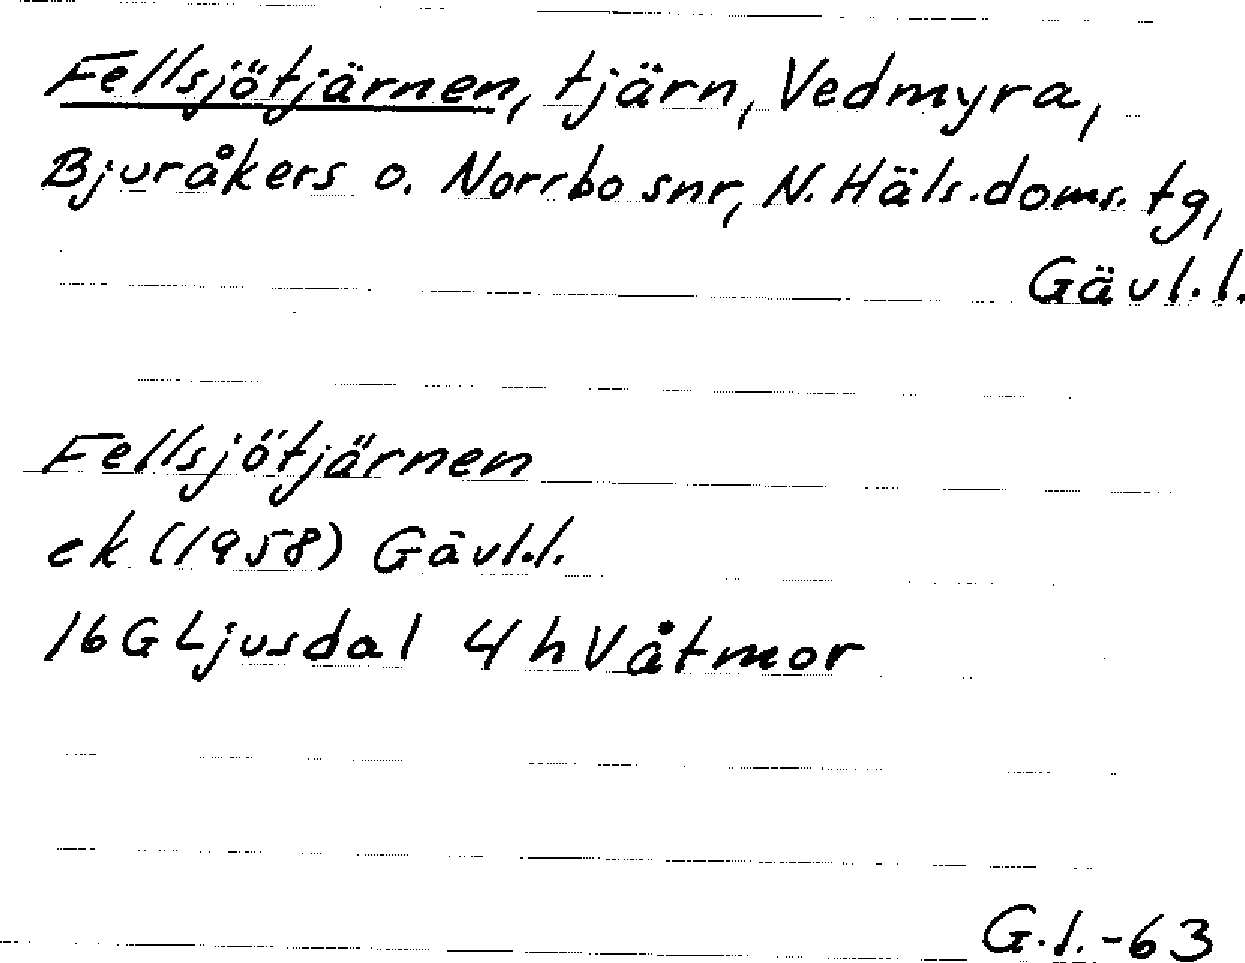 Fellsjötjärnen, tjärn, Vedmyra,
Bjuråkers o. Norrbo snr, N. Häls.doms. tg,
Gävl.l.
Fellsjötjärnen
ek (1958) Gävl.l.
16G Ljusdal 4h Våtmor
G.l.-63